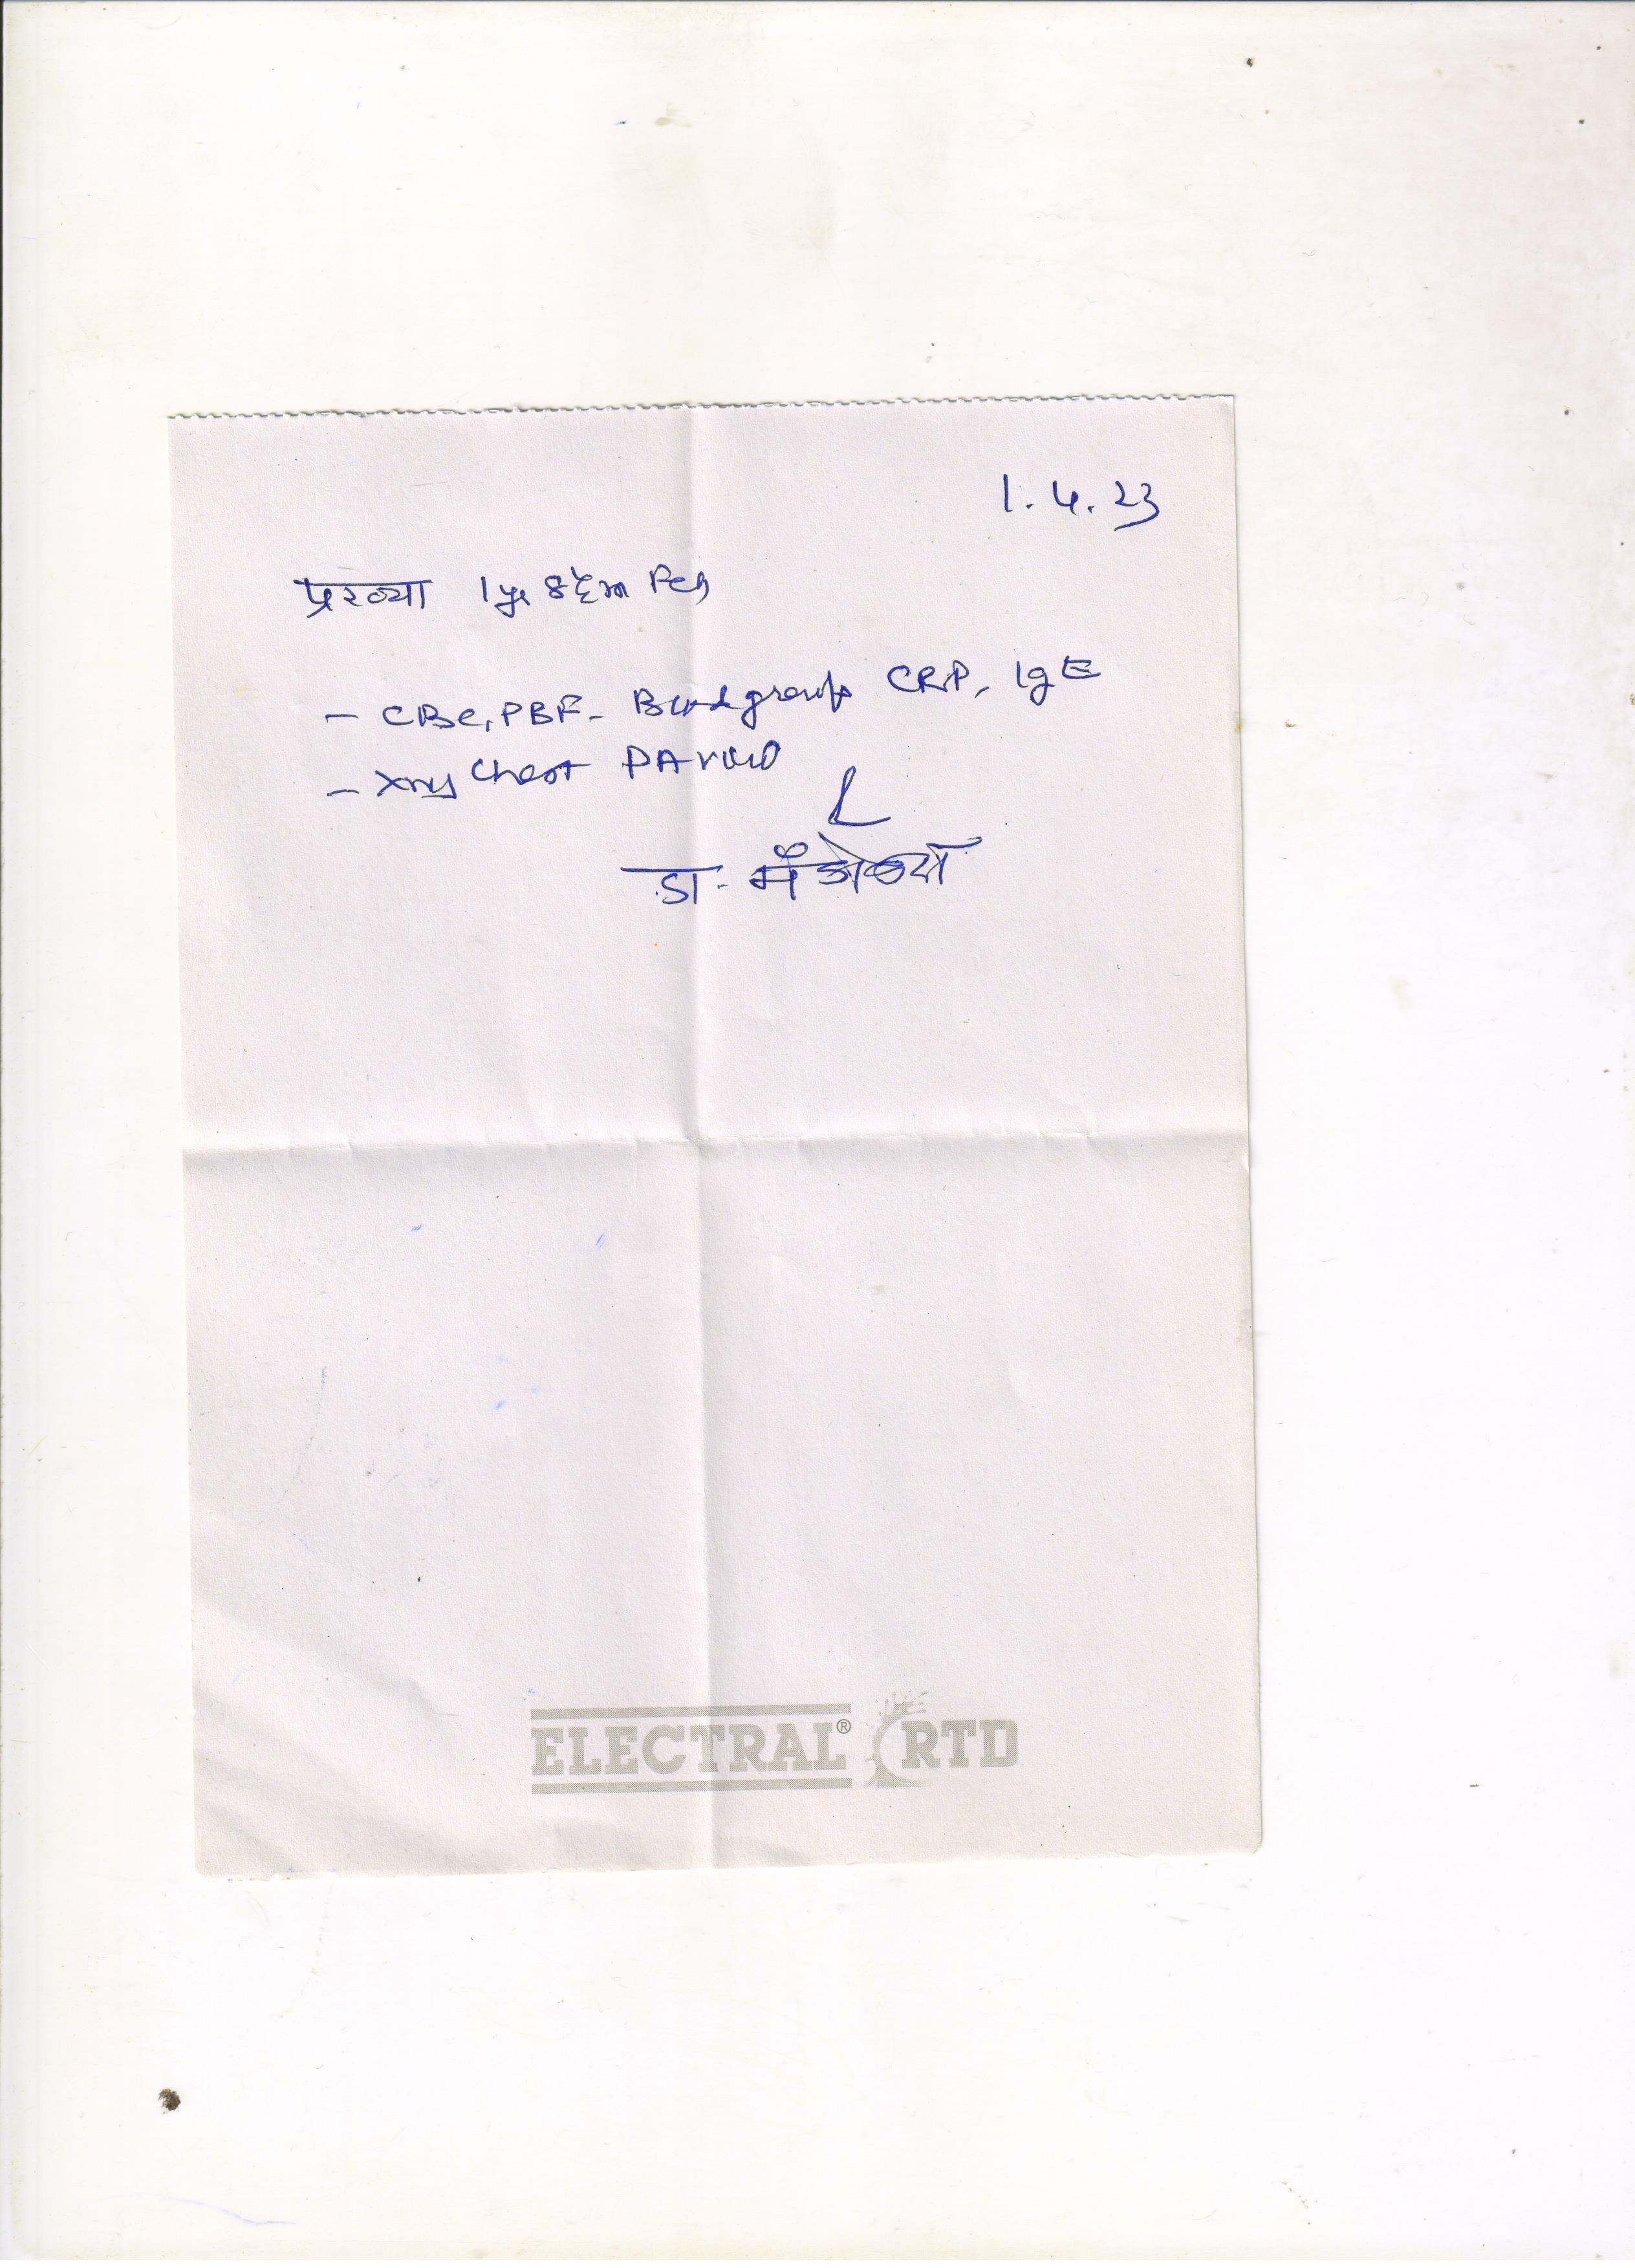 1.4.23
प्रख्या 1 yr
- CBC, PBF - Blood group CRP, IgE
- Xray Chest PA view
डा.
ELECTRAL® RTD